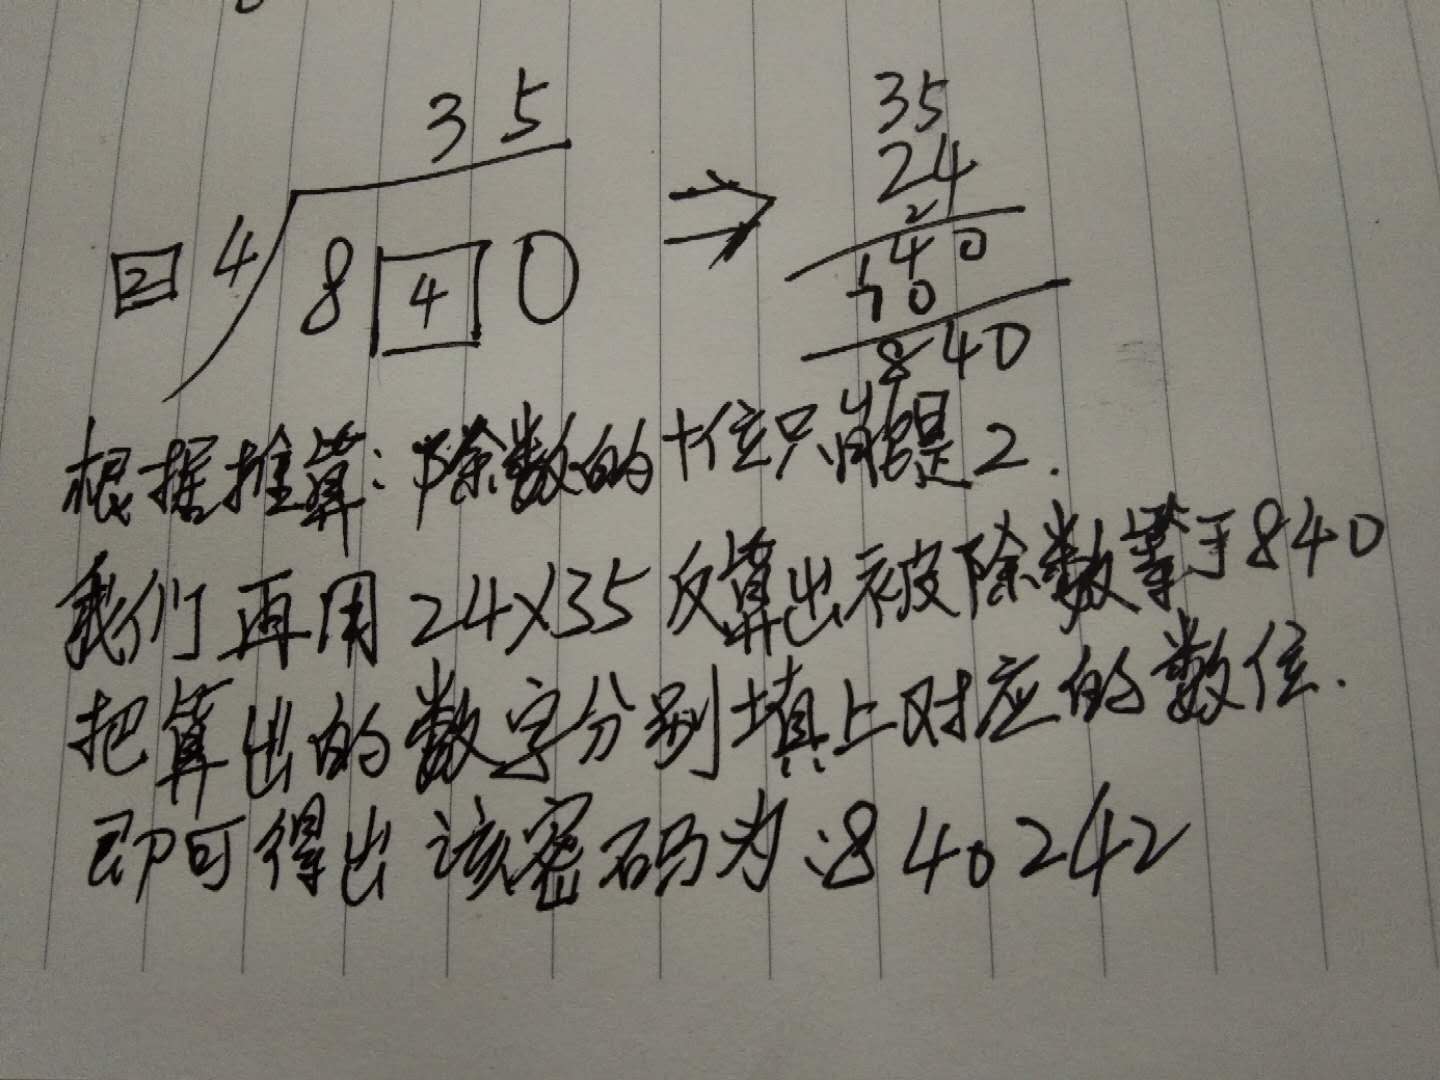 35
35
24
2
2 4 8 4 0
140
70
840
根据推算:除数的十位只能是2.
我们再用24×35反算出被除数等于840
把算出的数字分别填上对应的数位.
即可得出该密码为:840242